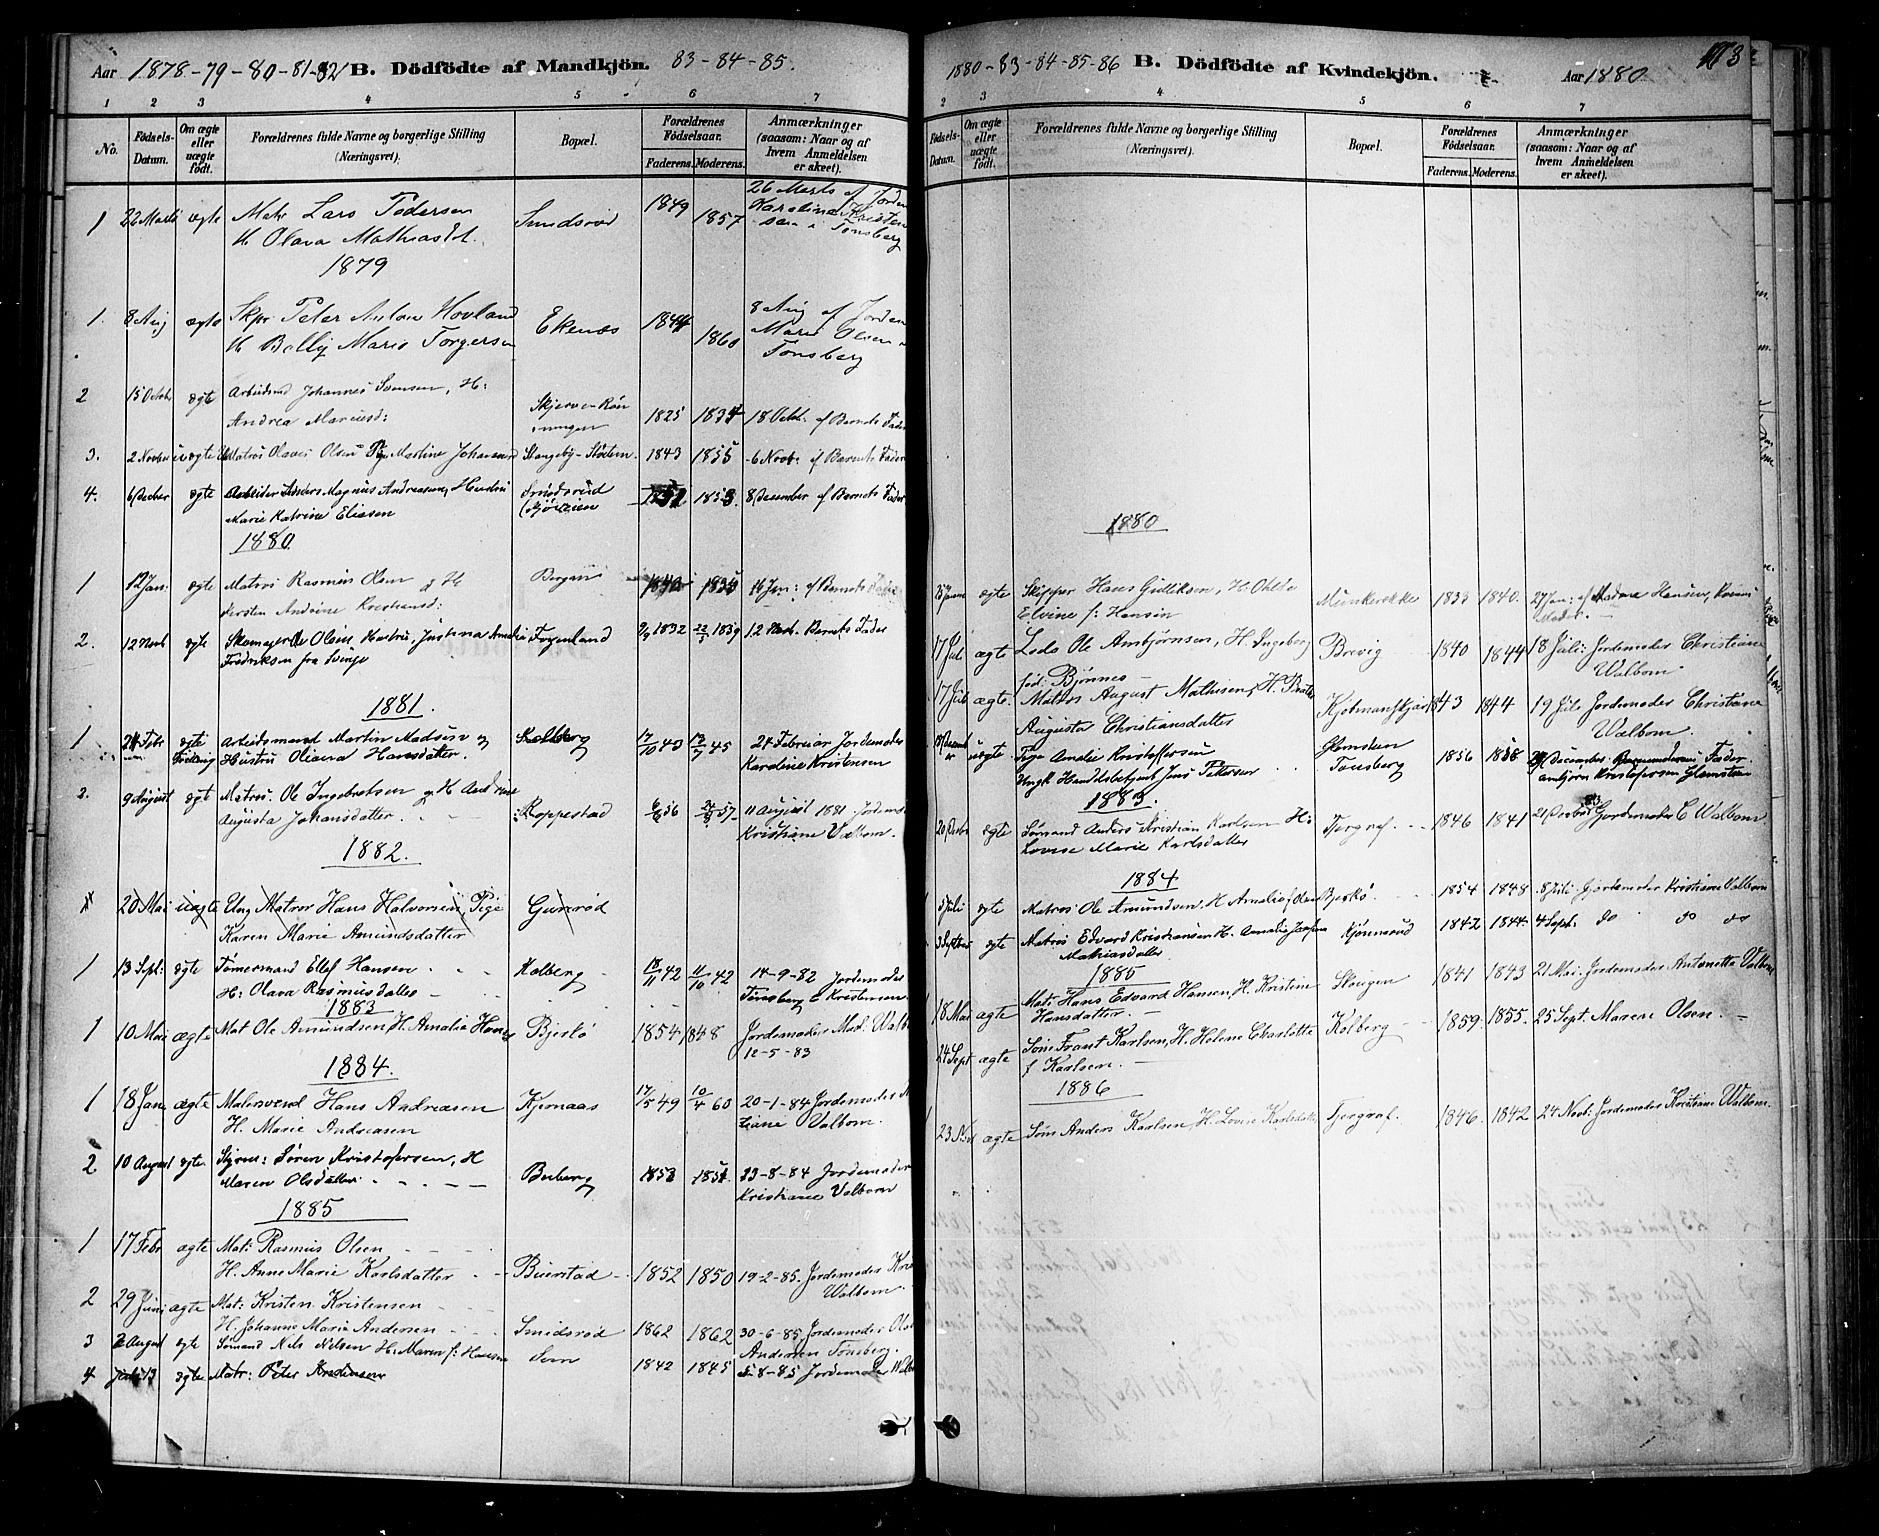 Aar 1878-79-80-81-82 B. Dödfödte af Mandkjön. 83-84-85.
1 2 3 4 5 6 7
No. Födsels-Datum. Om ægte eller uægte födt. Forældrenes fulde Navne og borgerlige Stilling (Næringsvei). Bopæl. Forældrenes Födselsaar. Faderens. Moderens. Anmærkninger (saasom: Naar og af hvem Anmeldelsen er skeet).
1 22 Marts ægte Matr Lars Pedersen 1849 1857 26 Marts af Jordem
H Olava Mathiasd. Karoline Kristen
sen i Tønsberg
1879
1. 8 Aug ægte Skpr Peter Anton Hovland Ekenæs 1844 1860 8 Aug af Jordem
H Bolly Marie Torgersen Marie Olsen i
Tønsberg
2 15 Octob ægte Arbeidsmd Johannes Svensen, H: 1825 1834 18 Octb. af Barnets Fader
Andrea Mariusd:
3. 2 Novbr uægte Matros Olaves Olsen Pige Martine Johansen 1843 1855 6 Novb. af Barnets Fader
4. 6 Decber ægte Arbeider Anders Magnus Andreassen, Hustru Smidsrød 1853 8 December af Barnets Fader
Marie Katrine Eliasen
1880
1 12 Jan: ægte Matros Rasmus Olsen og H Bergan 16 Jan: af Barnets Fader
Kirsten Andrine Kristiansd:
2. ægte Skomager Ole Olsen Hustru, Justina Amalie Føyenland 1832 1839 Barnets Fader
Fredriksen fra
1881.
1 24 Febr ægte Arbeidsmand Martin Madsen og Kolberg 17/10 43 45 24 Februar Jordemoder
Hustru Oliana Hansdatter. Karoline Kristensen
2. 9 August ægte Matros. Ole Ingebretsen og H Andrine Roppestad 56 57 11 August 1881. Jordemo
Augusta Johansdatter. Kristiane Valbom.
1882.
1 20 Mai uægte Ung Matros Hans Halvorsen, Pige Gunrød
Karen Marie Amundsdatter
1 13 Sept: ægte Tømermand Ellef Hansen Kolberg 18/11 42 11/10 42 14-9-82 Jordemoder
H: Olava Rasmusdatter Tønsberg Kristensen
1883
1 10 Mai ægte Mat Ole Amundsen, H. Amalia Hans Bjerkø 1854 1848 Jordemoder Mad. Valbo
12-5-83
1884.
1 18 Jan ægte Malersvend Hans Andreasen Kjernaas 17/5 49 10/4 60 20-1-84 Jordemoder
H. Marie Andreasen tiane Valbom.
2 10 August ægte Søren Kristofersen, H Buberg 1853 13-8-84 Jordemoder
Maren Olsdatter Kristiane Valbom
1885
1 17 Febr ægte Mat: Rasmus Olsen
H. Anne Marie Karlsdatter Buerstad 1852 1850 19-2-85. Jordemoder Kri
Walbom.
2 29 Juni ægte Mat: Kristen Kristensen
H. Johanne Marie Andersen Smidsrød 1862 1862 30-6-85, Jordemoder
Andersen Tønsberg.
3 August ægte Sømand Nels Nelsen H. Maren f: Hansen Sem 1842 1845 5-8-85 Jordemoder Walbo
4 ægte Matr: Peter Andersen
1880-83-84-85-86 B. Dödfödte af Kvindekjön. Aar 1880. 173
2 3 4 5 6 7
Födsels-Datum. Om ægte eller uægte födt. Forældrenes fulde Navne og borgerlige Stilling (Næringsvei). Bopæl. Forældrenes Födselsaar. Faderens. Moderens. Anmærkninger (saasom: Naar og af hvem Anmeldelsen er skeet).
1880
ægte Skipper Hans Gulliksen, H. Munkerekke 1833 1840. 27 Jan: af Madame Hansen,
Elvine f: Hansen
17 Juli ægte Lods Ole Ambjørnsen, H. Ingeborg Brevig 1840 1844 18 Juli: Jordemoder Christiane
fød: Bjønnes Walbom
17 Juli ægte. Matros August Mathisen, H. 43 1844 19 Juli Jordemoder Christiane
Augusta Christiansdatter Walbom
uægte Pige Amalie Kristoffersen Glomstein 1856 1858 December Fader
Ungk Handelsbetjent Jens Pettersen Tønsberg Kristofersen Glomstein
1883.
20 Decbr ægte Sømand Anders Kristian Karlsen H: 1846 1841 21 Decbr 83 Gjordemoder C Walbom
Lovise Marie Karlsdatter
1884
Juli ægte Matros Ole Amundsen. H Amalie f Hans Bjerkø 1854 1848 8 Juli Gjordemoder Kristiane Valbom
3 Septber ægte Matros Edvard Kristiansen H. Amalie Josefine Kjønnerud 1842 1844 4 Sept. do do do
Mathiasdatter
1885
18 Mai ægte Mat: Hans Edvard Hansen, H. Kristine Skougen 1841 1843 21 Mai. Jordemoder Antonette Valbom
Hansdatter.
24 Sept ægte Søm Frant Karlsen, H. Helene Charlotte Kolberg 1859. 1855. 25 Sept. Marene Olsen.
f Karlsen
1886
23 Nov ægte Søm Anders Karlsen, H. Lovise Karlsdatter 1846 1842 24 Novb: Jordemoder Kristiane Walbom.